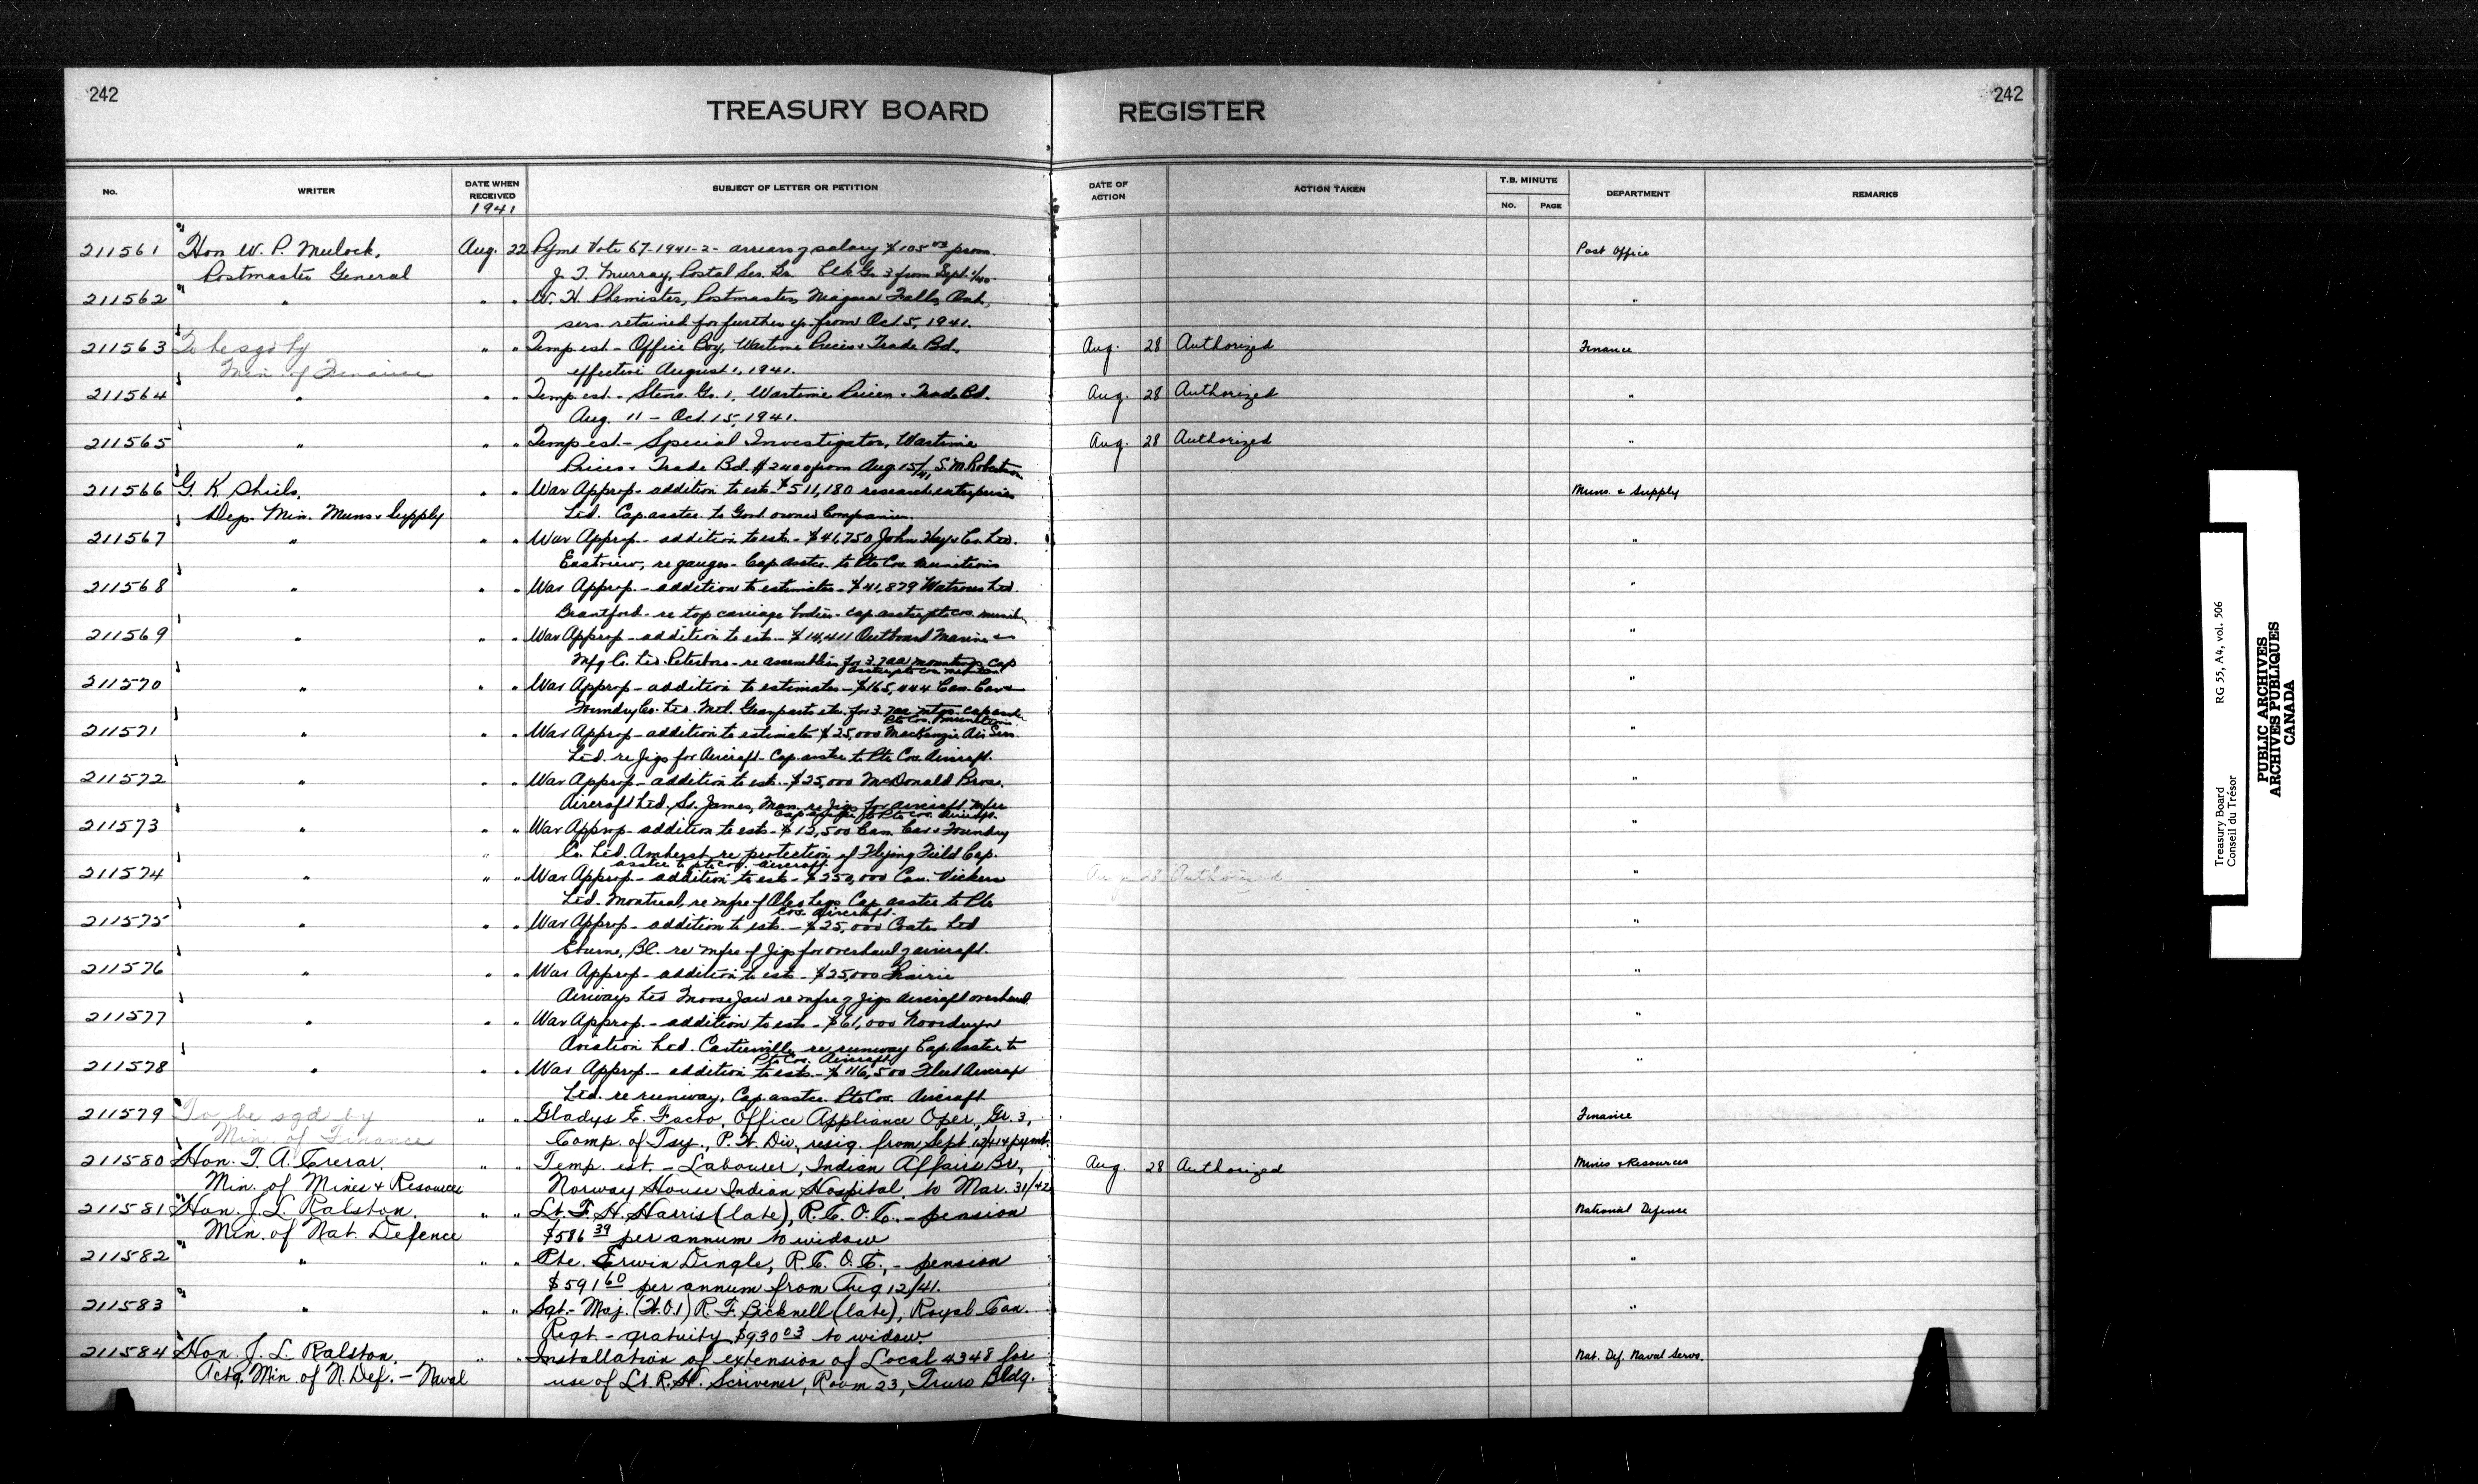 242
TREASURY BOARD REGISTER
242
No. WRITER DATE WHEN RECEIVED SUBJECT OF LETTER OR PETITION DATE OF ACTION ACTION TAKEN T.B. MINUTE No. PAGE DEPARTMENT REMARKS
1941
211561 Hon W. P. Mulock, Aug. 22 Pymt Vote 67-1941-2- arrears of salary $105 prom. Post Office
Postmaster General J. T. Murray, Postal Ser. Clk Gr. 3 from Sept. 1/40.
211562 " " " W. H. Phemister, Postmaster, Niagara Falls, Ont., "
sers. retained for further yr. from Oct. 5, 1941.
211563 To be sgd by " " Temp est - Office Boy, Wartime Prices & Trade Bd. Aug. 28 Authorized Finance
Min. of Finance effective August 1, 1941.
211564 " " " Temp est - Steno. Gr. 1, Wartime Prices & Trade Bd. Aug. 28 Authorized "
Aug. 11 - Oct. 15, 1941.
211565 " " " Temp est - Special Investigator, Wartime Aug. 28 Authorized "
Prices & Trade Bd. $2400 from Aug 15/41 S. M. Robertson
211566 G. K. Shiels, " " War Approp - addition to ests - $511,180 research enterprises Muns. & Supply
Dep. Min. Muns & Supply Ltd. Cap. asstce. to Govt. owned Companies.
211567 " " " War Approp - addition to ests - $41,750 John Co. Ltd. "
Eastview, re gauges - Cap asstce to Pte Cos. Munitions
211568 " " " War Approp. - addition to estimates - $41,879 Watrous Ltd. "
Brantford - re top carriage bodies - cap asstce pte cos. muniti
211569 " " " War Approp - addition to ests - $14,411 Outboard Marine & "
Mfg Co. Ltd. Peterboro - re assembling for 3.7 AA mountings Cap
asstce pte cos munitions
211570 " " " War Approp - addition to estimates - $165,444 Can. Car & "
Foundry Co. Ltd. Mtl. Gear parts etc. for 3.7 AA mtgs. cap asstce
Pte Cos. Munitions
211571 " " " War Approp - addition to estimates $25,000 MacKenzie Air Serv. "
Ltd. re Jigs for Aircraft - Cap asstce to Pte Cos. Aircraft.
211572 " " " War Approp - addition to ests. - $25,000 McDonald Bros. "
Aircraft Ltd. St. James, Man. re Jigs for aircraft mfre
Cap asstce to Pte Cos. Aircraft.
211573 " " " War Approp - addition to ests - $12,500 Can. Car & Foundry "
Co. Ltd. Amherst re protection of Flying Field Cap.
asstce to pte cos. aircraft
211574 " " " War Approp - addition to ests - $250,000 Can. Vickers Aug 28 Authorized "
Ltd. Montreal, re mfre of Oleo Legs Cap asstce to Pte
Cos. Aircraft.
211575 " " " War Approp - addition to ests. - $25,000 Coates Ltd "
Eburne, BC. re mfre of Jigs for overhaul of aircraft.
211576 " " " War Approp - addition to ests - $25,000 Prairie "
Airways Ltd Moose Jaw re mfre of Jigs Aircraft overhaul.
211577 " " " War Approp. - addition to ests - $61,000 Noorduyn "
Aviation Ltd. Cartierville re runway Cap. asstce to
Pte Cos. Aircraft
211578 " " " War Approp. - addition to ests. - $116,500 Fleet Aircraft "
Ltd. re runway, Cap. asstce. Pte Cos. Aircraft
211579 To be sgd by " " Gladys E. Facto, Office Appliance Oper., Gr. 3, Finance
Min. of Finance Comp. of Tsy., P. W. Div., resig. from Sept. 12/41 & pymt.
211580 Hon. T. A. Crerar, " " Temp. est. - Labourer, Indian Affairs Br., Aug. 28 Authorized Mines & Resources
Min. of Mines & Resources Norway House Indian Hospital, to Mar. 31/42
211581 Hon. J. L. Ralston, " " Lt. F. H. Harris (late), R.C.O.C., - pension National Defence
Min. of Nat. Defence $586 39 per annum to widow
211582 " " " Pte. Erwin Dingle, R.C.O.C., - pension "
$591 60 per annum from Aug 12/41.
211583 " " " Sgt.-Maj. (W.O.1) R. F. Bicknell (late), Royal Can. "
Regt. - gratuity $930 03 to widow.
211584 Hon. J. L. Ralston, " " Installation of extension of Local 4348 for Nat. Def. Naval Servs.
Actg. Min. of N. Def. - Naval use of Lt. R. H. Scrivener, Room 23, Truro Bldg.
Treasury Board RG 55, A4, vol. 506
Conseil du Trésor
PUBLIC ARCHIVES
ARCHIVES PUBLIQUES
CANADA